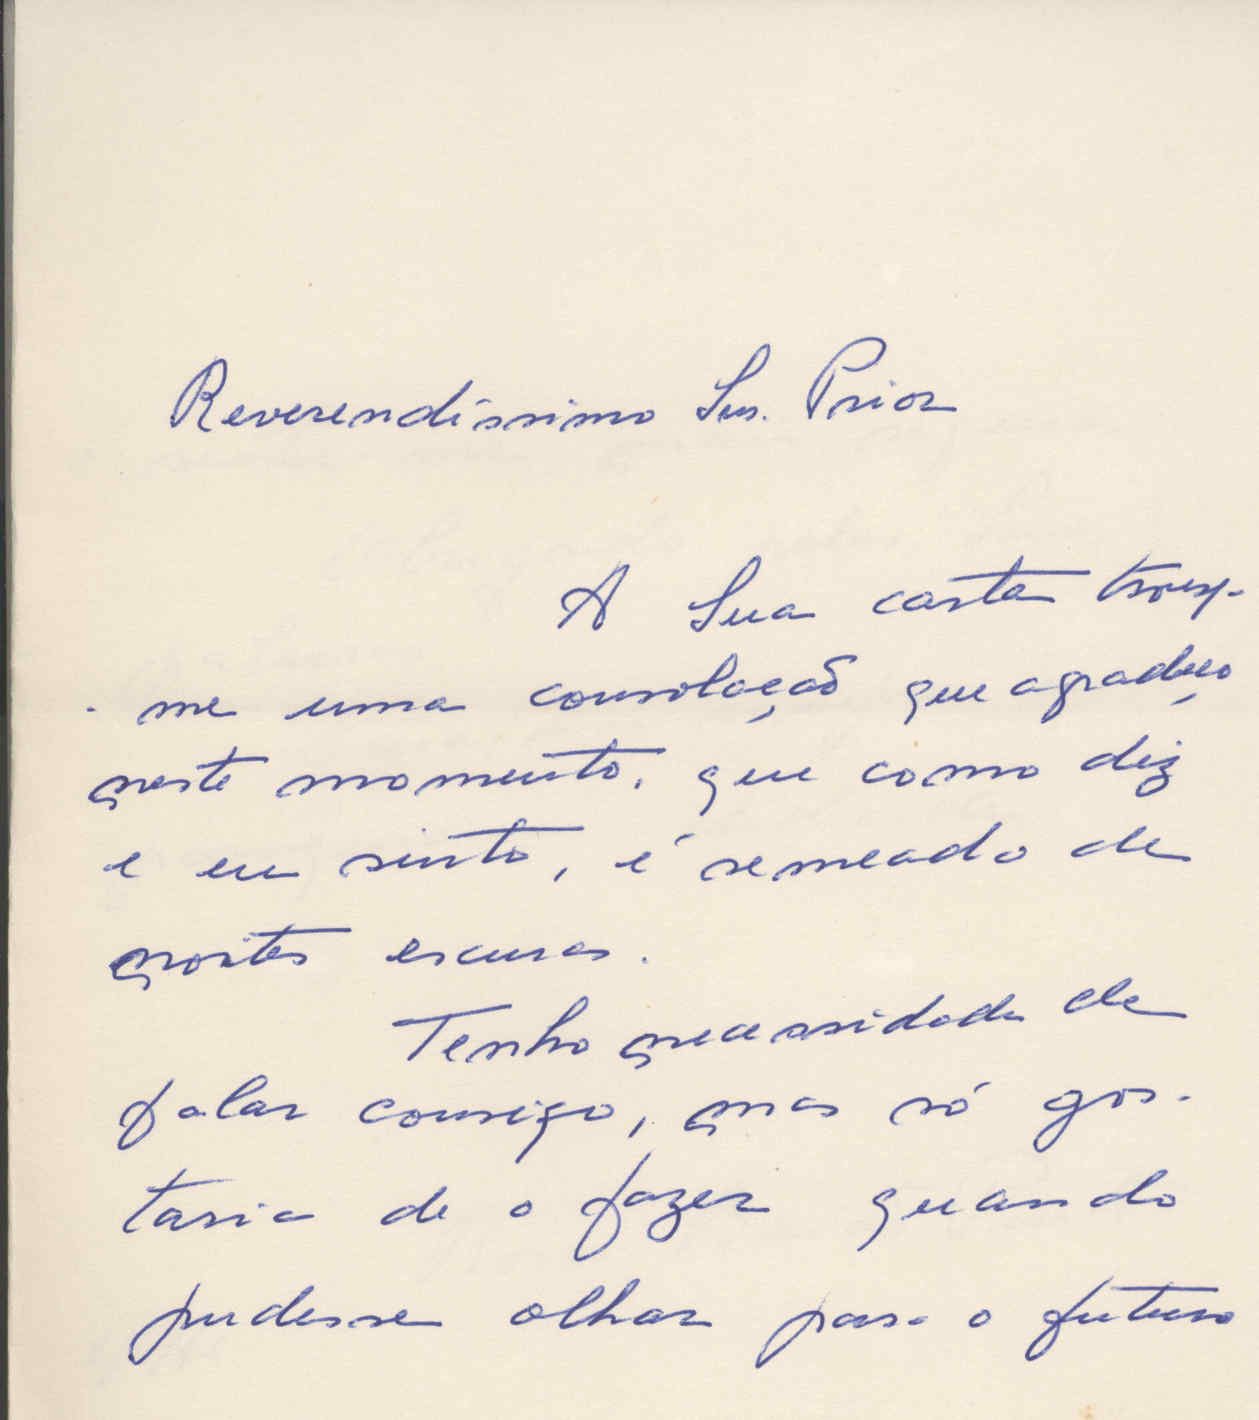 Reverendíssimo Snr. Prior
A Sua carta troux-
-me uma consolação que agradeço
neste momento, que como diz
e eu sinto, é semeado de
noites escuras.
Tenho necessidade de
falar consigo, mas só gos-
taria de o fazer quando
pudesse olhar para o futuro